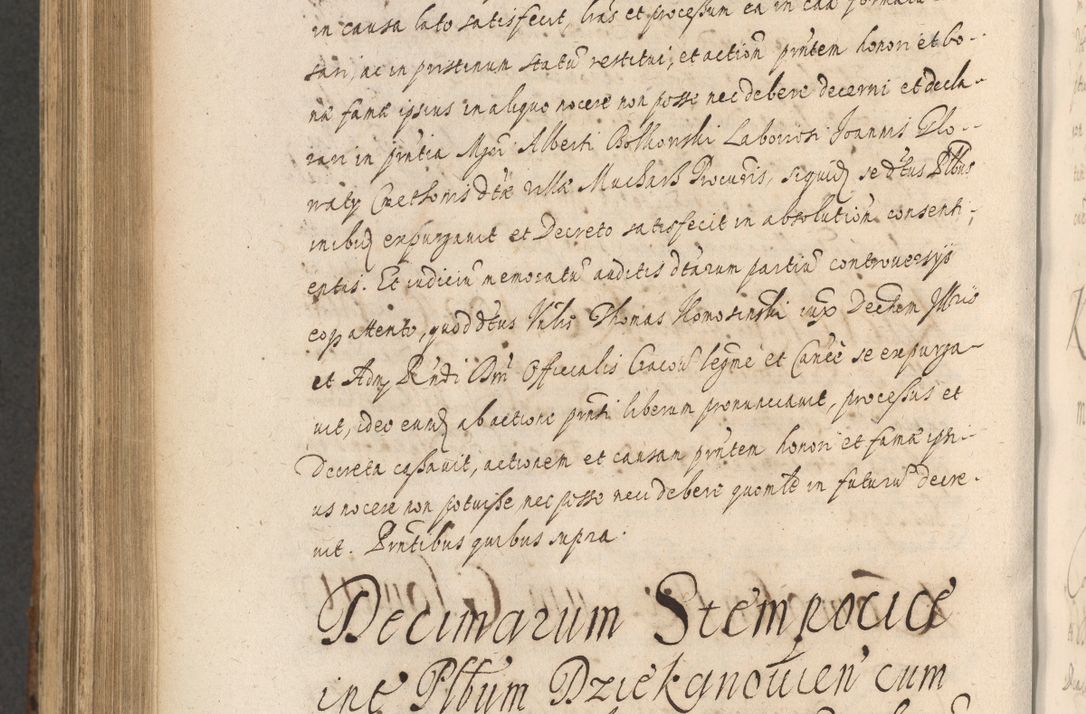 in causa lato satisfecit, lras et processum ea in caa formata
sari, ac in pristinum statũ restitui, et action prñtem honori et bo-
næ famæ ipsius in aliquo nocere non posse nec debere decerni et decla-
rari in prñtia Alberti Bolkonski Laboriosi Joannis Glo-
waty Cmethonis dtæ villæ Mucharz Procuris, siquid se dtus Plbus
inibi expurgavit et Decreto satisfecit in absolution consenti-
entis. Et iudiciũ memoratũ auditis dtarum partiũ controversys
eoq attento, quod dtus Vnlis Thomas Komosinski iux Decrem Illris
et Adm Rndi Dni Officialis Cracov legme et Cance se expurga-
vit, ideo eund ab actione prnti liberum pronunciavit, processus et
Decreta cassavit, actionem et causam prntem honori et famæ ipsi-
us nocere non potuisse nec posse neci debere quomlt in futurũ decre-
vit. Prntibus quibus supra.
Decimarum Stempocice
int Plbum Dziekanovien cum